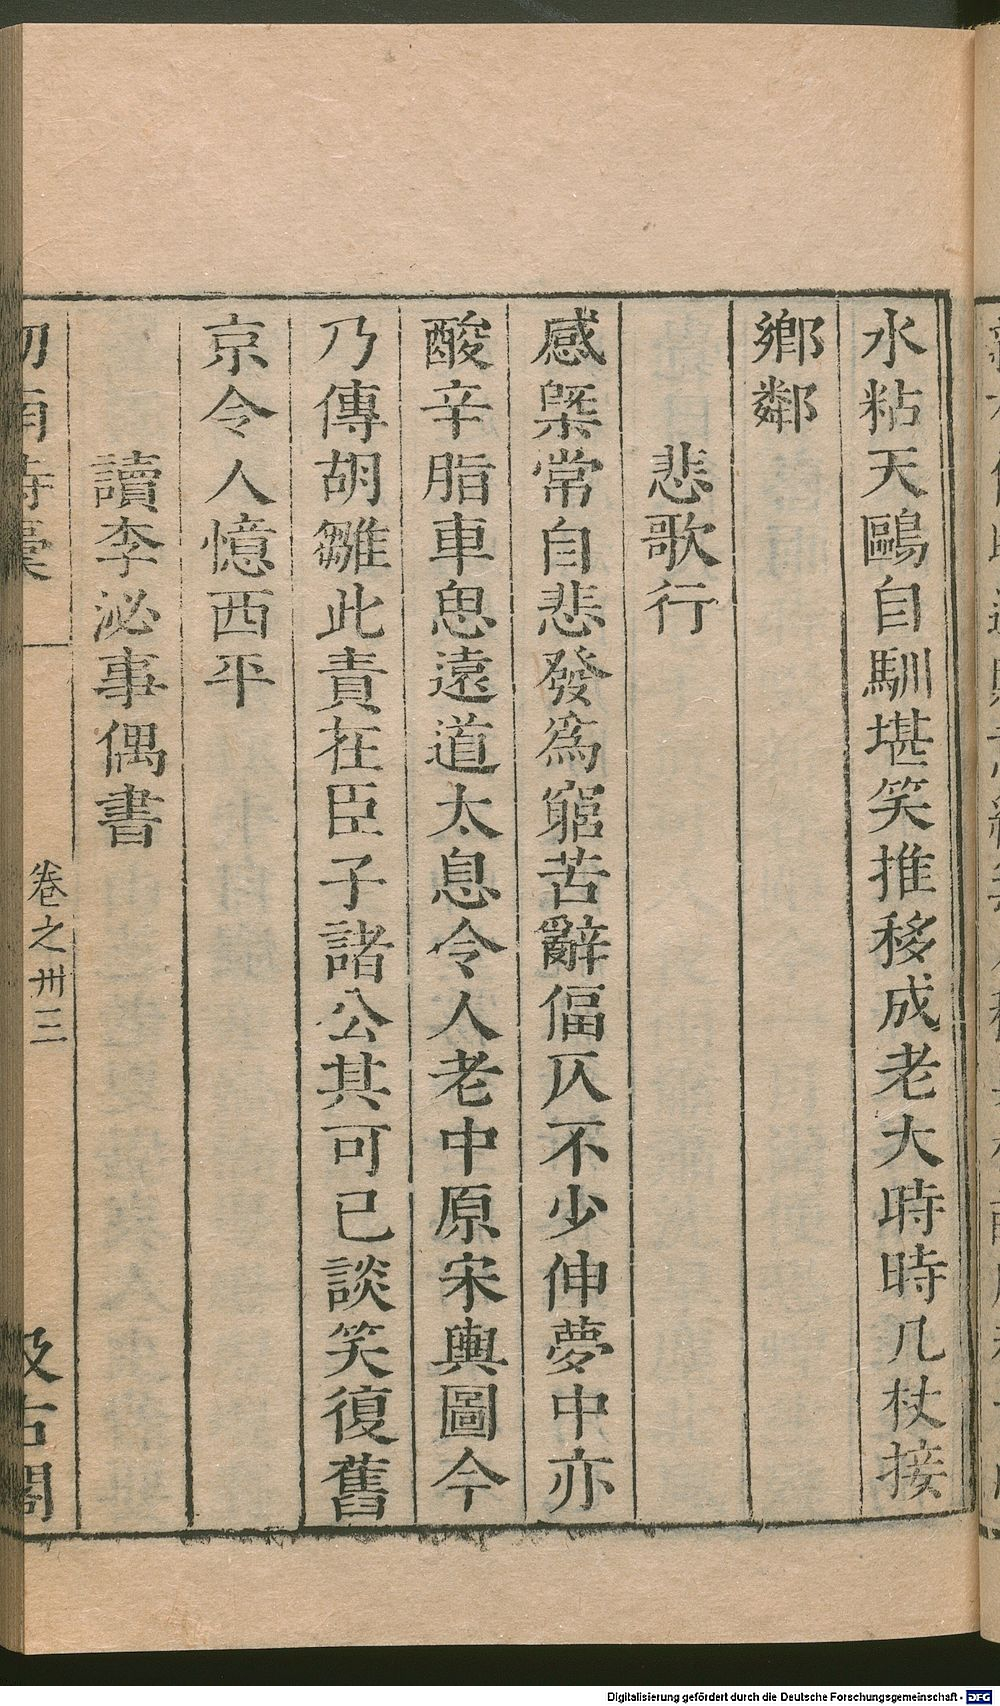 水粘天鷗自馴堪笑推移成老大時時几杖接
鄉鄰
悲歌行
感槩常自悲發爲窮苦辭偪仄不少伸夢中亦
酸辛脂車思遠道太息令人老中原宋輿圖今
乃傳胡雛此責在臣子諸公其可已談笑復舊
京令人憶西平
讀李泌事偶書
劒南詩稾
卷之卅三
汲古閣
Digitalisierung gefördert durch die Deutsche Forschungsgemeinschaft - DFG